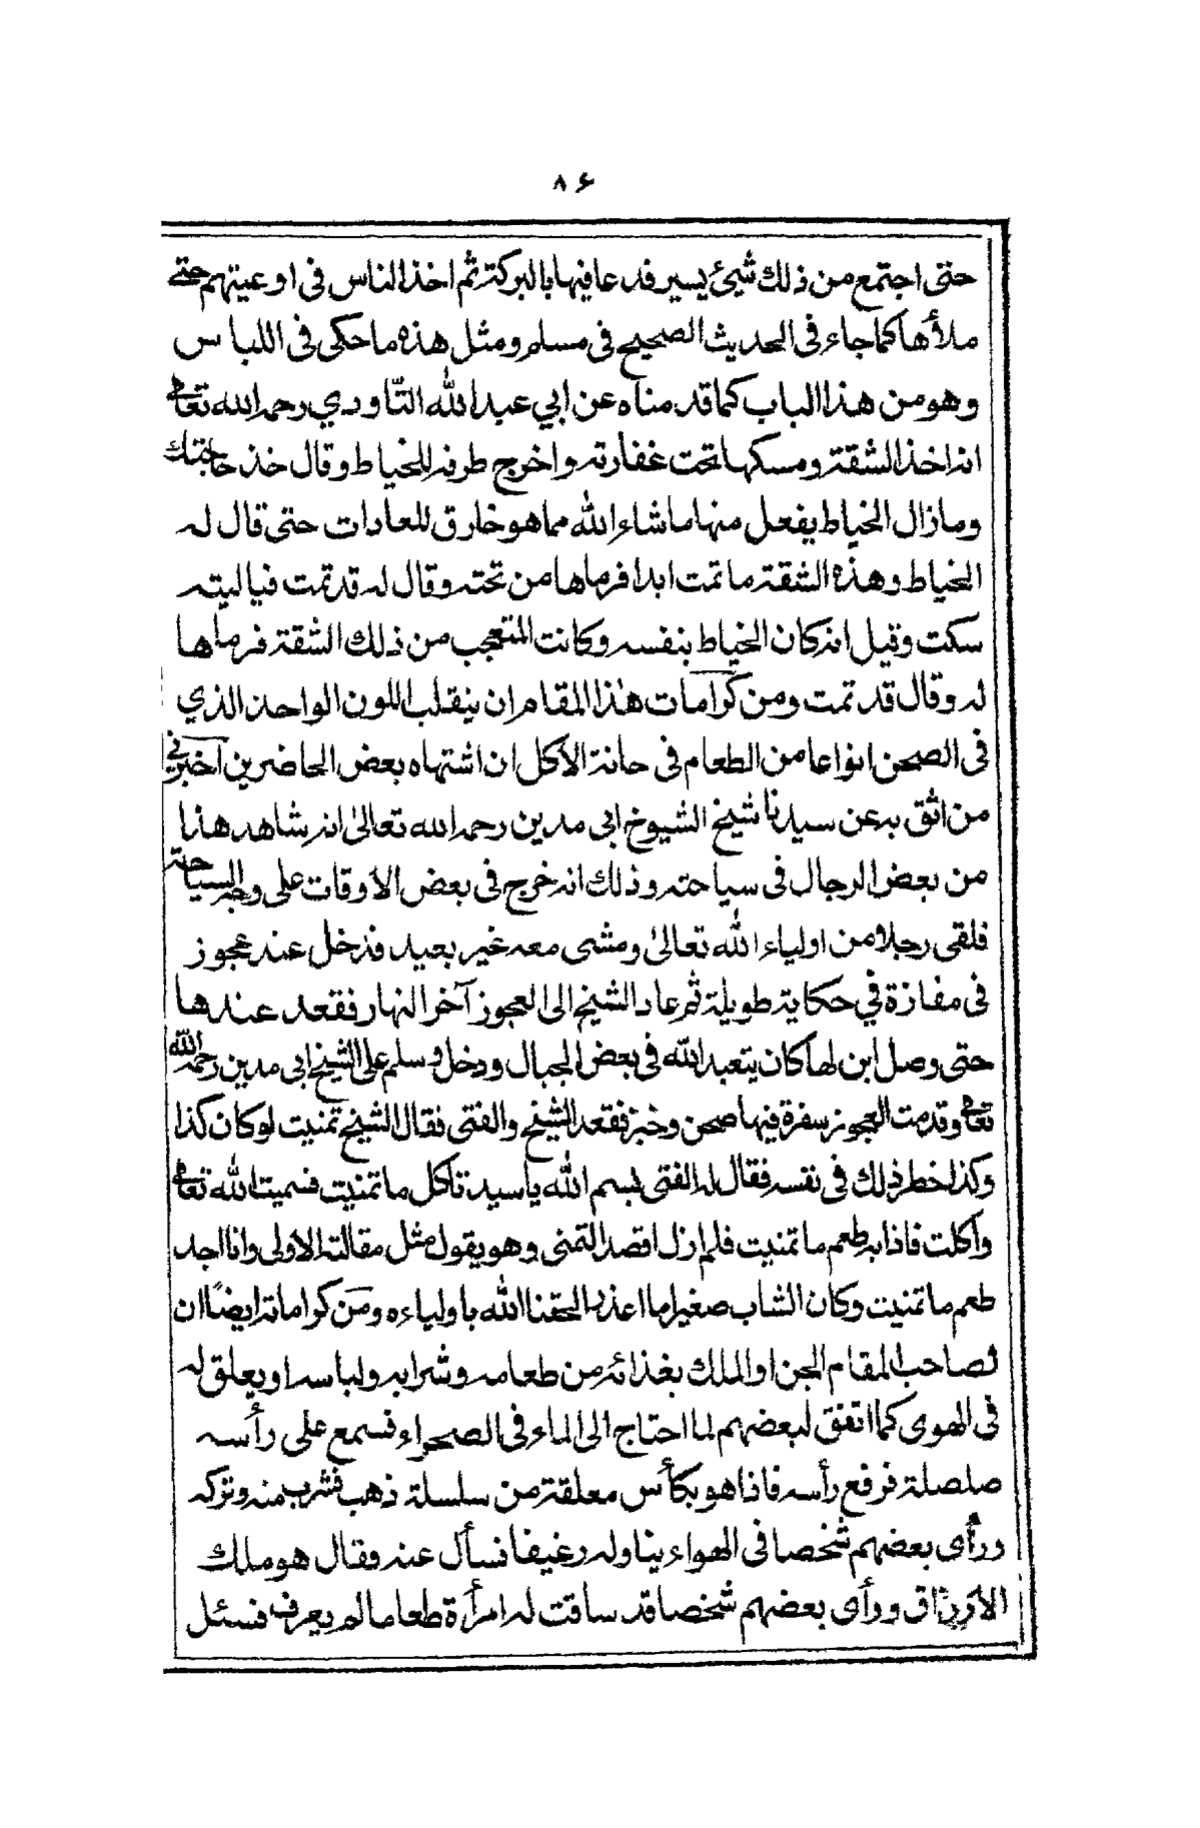 ٨۶
حتى اجتمع من ذلك شيئ يسير فدعا فيها بالبركة ثم اخذ الناس فى اوعيتهم حتے
ملأها كما جاء فى الحديث الصحيح فى مسلم ومثل هذه ما حكى فى اللباس
وهو من هذا الباب كما قدمناه عن ابي عبد الله التّاودي رحمه الله تعالى
انه اخذ الشقة ومسكها تحت غفارته واخرج طرفه للخياط وقال خذ حاجتك
وما زال الخياط يفعل منها ما شاء الله مما هو خارق للعادات حتى قال له
الخياط وهذه الشقة ما تمت ابدا فرماها من تحته وقال له قد تمت فيا ليته
سكت وقيل انه كان الخياط بنفسه وكانت المتعجب من ذلك الشقة فرماها
له وقال قد تمت ومن كرامات هٰذا المقام ان ينقلب اللون الواحد الذي
فى الصحن انواعا من الطعام فى حانة الأكل ان اشتهاه بعض الحاضرين اخبرني
من اثق به عن سيدنا شيخ الشيوخ ابى مدين رحمه الله تعالىٰ انه شاهد هذا
من بعض الرجال فى سياحته وذلك انه خرج فى بعض الأوقات على وجه السياحة
فلقى رجلا من اولياء الله تعالىٰ ومشى معه غير بعيد فدخل عند عجوز
فى مفازة في حكاية طويلة ثم عاد الشيخ الى العجوز آخر النهار فقعد عندها
حتى وصل ابن لها كان يتعبد الله فى بعض الجبال ودخل وسلم على الشيخ ابى مدين رحمه الله
تعالى وقدمت العجوز سفرة فيها صحن وخبز فقعد الشيخ والفتى فقال الشيخ تمنيت لو كان كذا
وكذا خطر ذلك فى نفسه فقال له الفتى بسم الله يا سيد تأكل ما تمنيت فسميت الله تعالى
وأكلت فاذا به طعم ما تمنيت فلم ازل اقصد التمنى وهو يقول مثل مقالته الاولى وانا اجد
طعم ما تمنيت وكان الشاب صغيرا ما اعذر الحقنا الله باولياءه ومن كراماته ايضًا ان
لصاحب المقام الجن او الملك بغذائه من طعامه وشرابه ولباسه او يعلق له
فى الهوى كما اتفق لبعضهم لما احتاج الى الماء فى الصحراء فسمع على رأسه
صلصلة فرفع رأسه فاذا هو بكأس معلقة من سلسلة ذهب فشرب منه وتركه
ورأى بعضهم شخصا فى الهواء يناوله رغيفا فسأل عنه فقال هو ملك
الأرزاق ورأى بعضهم شخصا قد ساقت له امرأة طعاما لم يعرف فسئل